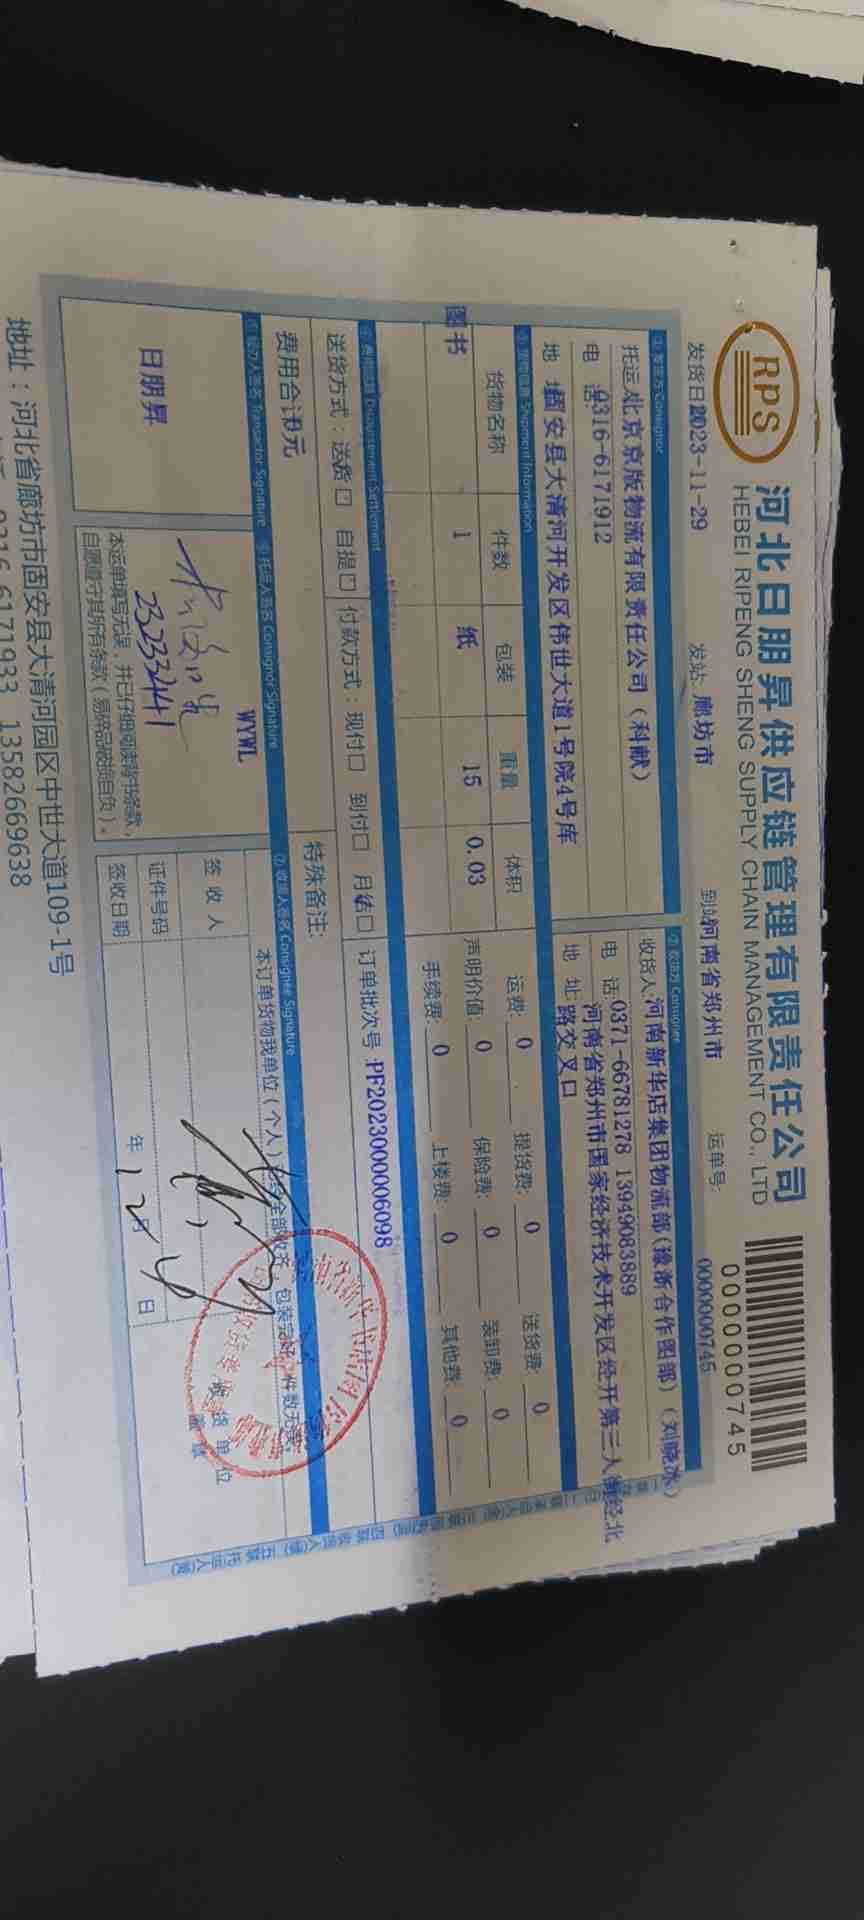 RPS
河北日朋昇供应链管理有限责任公司
HEBEI RIPENG SHENG SUPPLY CHAIN MANAGEMENT CO., LTD
0000000745
发货日 2023-11-29 发站: 廊坊市 到站 河南省郑州市 运单号: 0000000745
① 发货方 Consignor
托运人 北京京版物流有限责任公司（科献）
电 话: 0316-6171912
地 址 固安县大清河开发区伟世大道1号院4号库
② 收货方 Consignee
收货人: 河南新华店集团物流部(豫浙合作图部)（刘晓冰）
电 话: 0371-66781278 13949083889
地 址: 河南省郑州市国家经济技术开发区经开第三大街经北
路交叉口
③ 货物信息 Shipment Information
货物名称 件数 包装 重量 体积
图书 1 纸 15 0.03
运费: 0 提货费: 0 送货费: 0
声明价值: 0 保险费: 0 装卸费: 0
手续费: 0 上楼费: 0 其他费: 0
④ 费用结算 Disbursement Settlement
送货方式：送货□ 自提□ 付款方式：现付□ 到付□ 月结□ 订单批次号: PF2023000006098
费用合计 0元
特殊备注:
Transactor Signature
日朋昇
⑥ 托运人签名 Consignor Signature
WYWL
23233441
本运单填写无误，并已仔细阅读背书条款，
自愿遵守其所有条款（易碎品破损自负）。
⑦ 收货人签名 Consignee Signature
本订单货物我单位（个人）已全部收齐，包装完好，件数无误。
签 收 人
证件号码
签收日期 年 12 月 4 日
收货单位
盖章
地址：河北省廊坊市固安县大清河园区中世大道109-1号
0316-6171933 13582669638